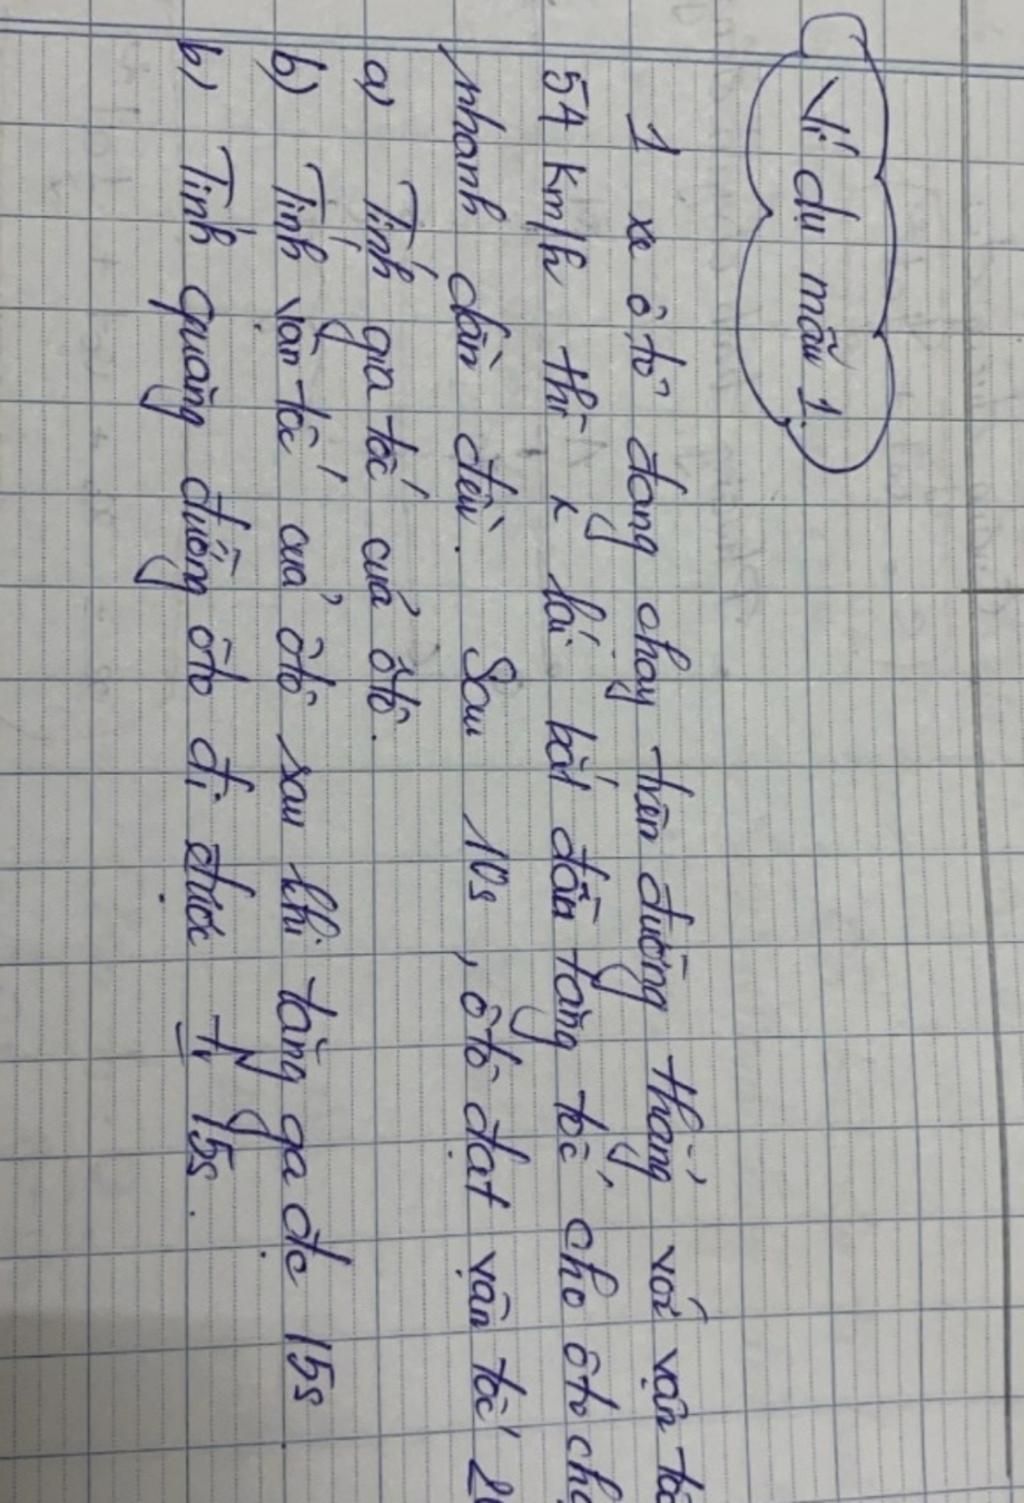 Ví dụ mẫu 1.
1 xe ô tô đang chạy trên đường thẳng với vận tốc
54 km/h thì lái bắt đầu tăng tốc cho ôto
nhanh dần đều. Sau 10s, ôtô đạt vận tốc
a) Tính gia tốc của ôtô.
b) Tính vận tốc của ôtô sau khi tăng ga đc 15s
b) Tính quãng đường ôto đi được 15s.